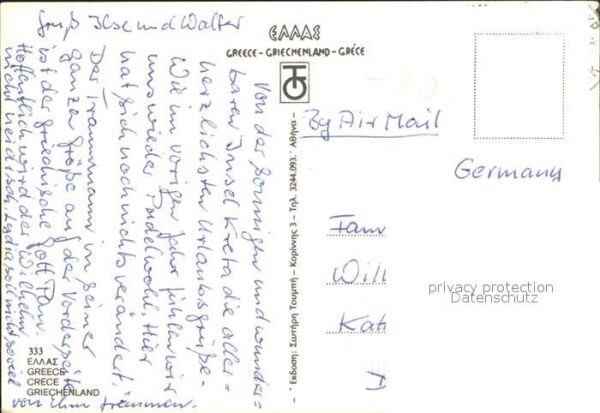 ΕΛΛΑΣ
GREECE - GRIECHENLAND - GRÉCE
Von der sonnigen und wunder=
baren Insel Kreta die aller=
herzlichsten Urlaubsgrüße.
Wie im vorigen Jahr fühlen wir
uns wieder Pudelwohl. Hier
hat sich noch nichts verändert.
Der Traummann in seiner
ganzen Größe auf der Vorderseite
ist der griechische Gott Pan.
Hoffentlich wird der Wilhelm
nicht neidisch. Lydia soll nicht so viel
von ihm träumen.
Gruß Ilse und Walter
333
ΕΛΛΑΣ
GREECE
CRECE
GRIECHENLAND
* Έκδοση: Σωτήρη Τουμπή - Κορίννης 3 - Τηλ. 3244.093. * Αθήνα -
By Air Mail
Germany
Fam
Will
Kat
privacy protection
Datenschutz